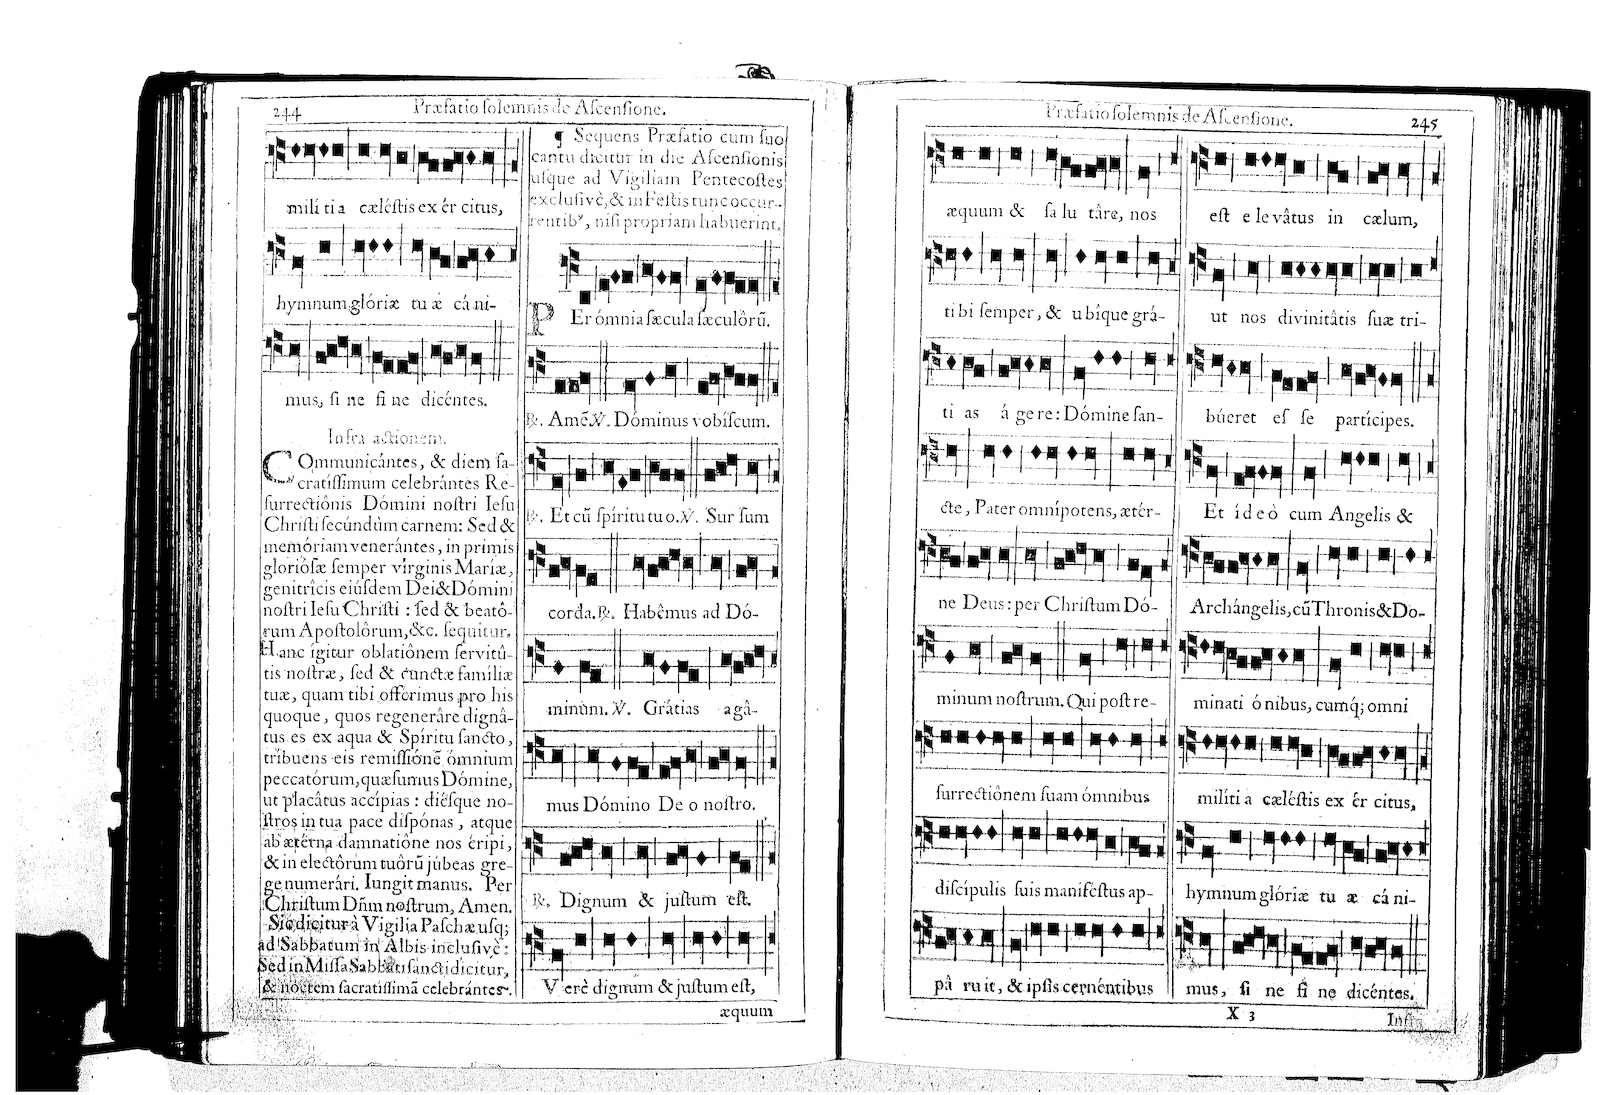 244
Præfatio folemnis de Afcenfione.
milí ti a cæléſtis ex ér citus,
hymnum glóriæ tu æ cá ni-
mus, ſi ne fi ne dicéntes.
Infra actionem.
COmmunicántes, & diem ſa-
cratíſſimum celebrántes Re-
ſurrectiônis Dómini noſtri Ieſu
Chriſti ſecúndùm carnem: Sed &
memóriam venerántes, in primis
glorióſæ ſemper vírginis Maríæ,
genitrîcis eiúſdem Dei & Dómini
noſtri Ieſu Chriſti : ſed & beatô-
rum Apoſtolôrum, &c. ſequitur.
Hanc ígitur oblatiônem ſervitû-
tis noſtræ, ſed & cunctæ famíliæ
tuæ, quam tibi offérimus pro his
quoque, quos regenerâre dignâ-
tus es ex aqua & Spíritu ſancto,
tríbuens eis remiſſiónẽ ómnium
peccatórum, quæſumus Dómine,
ut placâtus accípias : diéſque no-
ſtros in tua pace diſpónas, atque
ab ætérna damnatiône nos éripi,
& in electôrum tuôrũ júbeas gre-
ge numerári. Iungit manus. Per
Chriſtum Dñm noſtrum, Amen.
Sic dicitur à Vigilia Paſchæ uſq;
ad Sabbatum in Albis incluſivè:
Sed in Miſſa Sabbati ſancti dicitur,
& noctem ſacratiſſimã celebrántes.
¶ Sequens Præfatio cum ſuo
cantu dicitur in die Aſcenſionis
uſque ad Vigiliam Pentecoſtes
excluſivè, & in Feſtis tunc occur-
rentibꝰ, niſi propriam habuerint.
PEr ómnia ſæcula ſæculôrũ.
℟. Amẽ. ℣. Dóminus vobíſcum.
℟. Et cũ ſpíritu tu o. ℣. Sur ſum
corda. ℟. Habêmus ad Dó-
minum. ℣. Grátias agâ-
mus Dómino De o noſtro.
℟. Dignum & juſtum eſt.
Verè dignum & juſtum eſt,
æquum
Præfatio ſolemnis de Aſcenſione.
245
æquum & ſa lu târe, nos
ti bi ſemper, & u bîque grá-
ti as á ge re : Dómine ſan-
cte, Pater omnípotens, ætér-
ne Deus : per Chriſtum Dó-
minum noſtrum. Qui poſt re-
ſurrectiônem ſuam ómnibus
diſcípulis ſuis manifeſtus ap-
pâ ru it, & ipſis cernéntibus
eſt e le vâtus in cælum,
ut nos divinitâtis ſuæ tri-
búeret eſ ſe partícipes.
Et í de ò cum Angelis &
Archángelis, cũ Thronis & Do-
minati ó nibus, cumq; omni
milíti a cæléſtis ex ér citus,
hymnum glóriæ tu æ cá ni-
mus, ſi ne fi ne dicéntes.
X 3
Infra